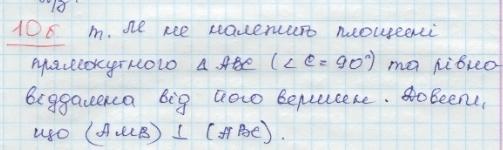 10б т. М не належить площині
прямокутного Δ ABC (∠C = 90°) та рівно
віддалена від його вершин. Довести,
що (AMB) ⊥ (ABC).